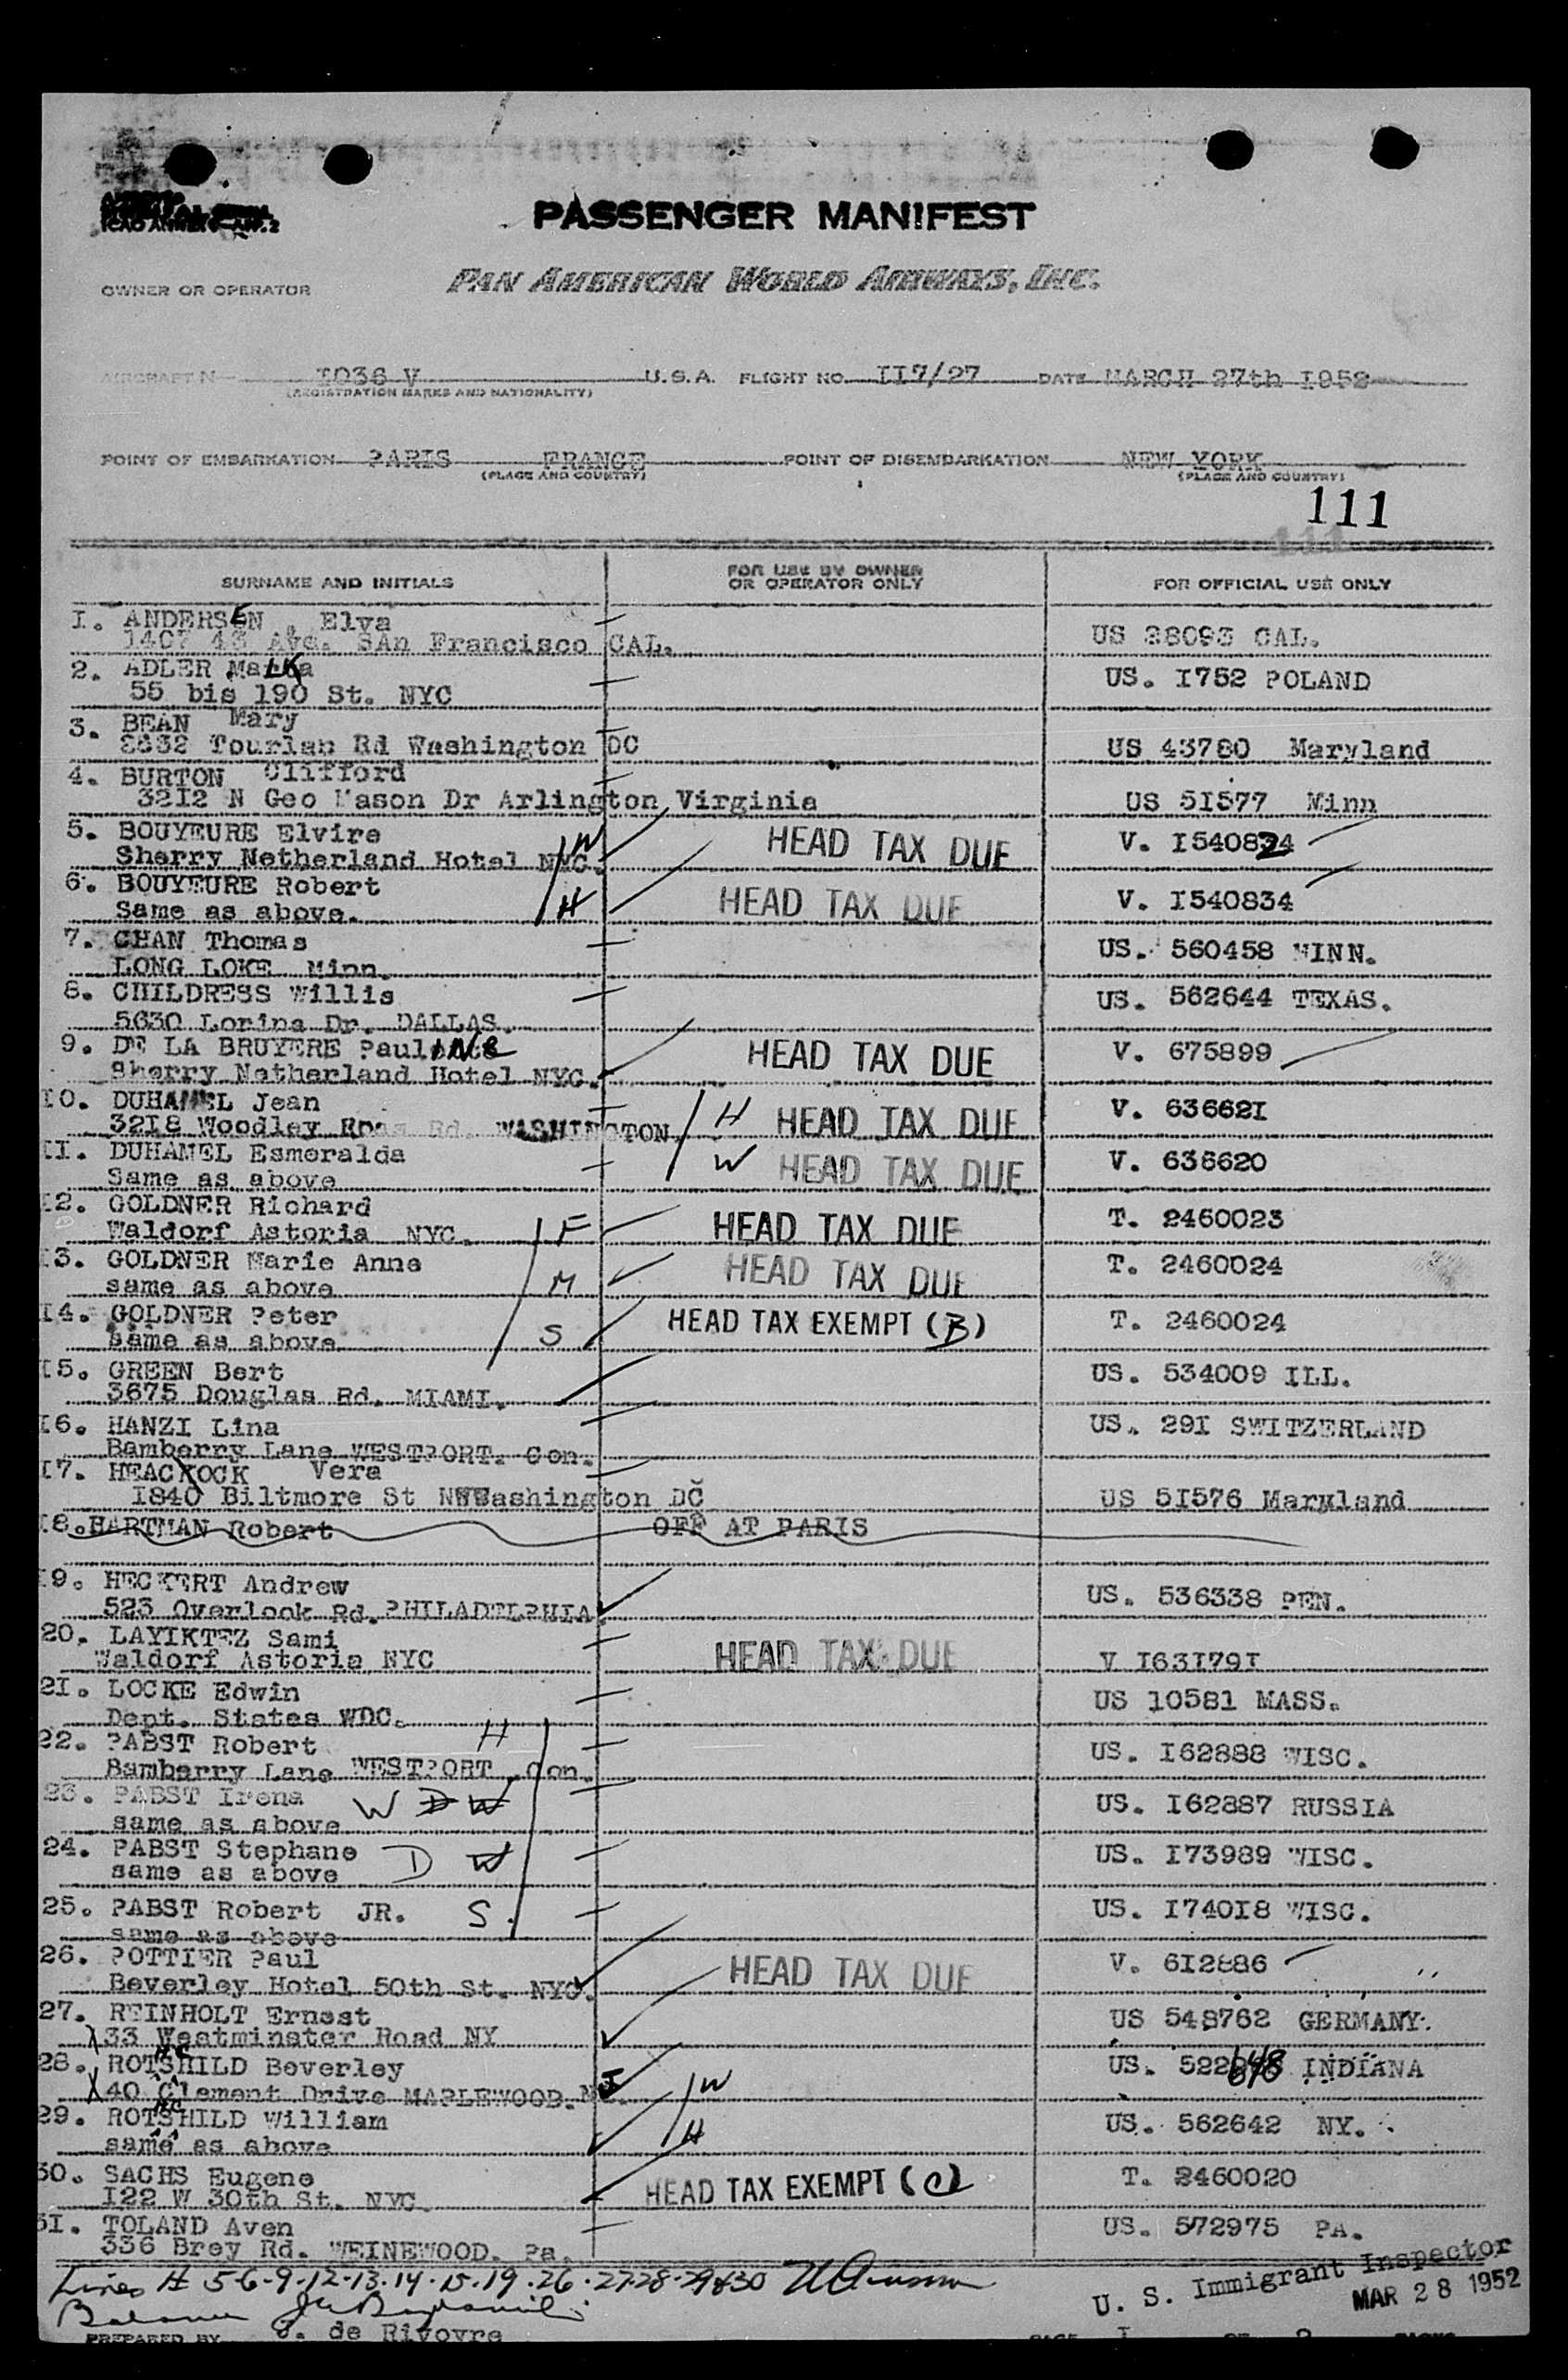 ICAO ANNEX 9 APP. 2
PASSENGER MANIFEST
OWNER OR OPERATOR PAN AMERICAN WORLD AIRWAYS, INC.
AIRCRAFT N I036 V U.S.A. FLIGHT NO. II7/27 DATE MARCH 27th I952
(REGISTRATION MARKS AND NATIONALITY)
POINT OF EMBARKATION PARIS FRANCE POINT OF DISEMBARKATION NEW YORK
(PLACE AND COUNTRY) (PLACE AND COUNTRY)
111
SURNAME AND INITIALS FOR USE BY OWNER OR OPERATOR ONLY FOR OFFICIAL USE ONLY
I. ANDERSEN , Elva
1407 43 Ave. SAn Francisco CAL. US 38093 CAL.
2. ADLER Malka US. I752 POLAND
55 bis 190 St. NYC
3. BEAN Mary
Tourlan Rd Washington DC US 43780 Maryland
4. BURTON Clifford
32I2 N Geo Mason Dr Arlington Virginia US 5I577 Minn
5. BOUYEURE Elvire W HEAD TAX DUE V. I540824
Sherry Netherland Hotel NYC.
6. BOUYEURE Robert H HEAD TAX DUE V. I540834
Same as above.
7. CHAN Thomas US. 560458 MINN.
LONG LOKE Minn.
8. CHILDRESS Willis US. 562644 TEXAS.
5630 Lorina Dr. DALLAS.
9. DE LA BRUYERE Pauline HEAD TAX DUE V. 675899
Sherry Netherland Hotel NYC.
I0. DUHAMEL Jean H HEAD TAX DUE V. 63662I
32I8 Woodley Rd. WASHINGTON
II. DUHAMEL Esmeralda W HEAD TAX DUE V. 636620
Same as above
I2. GOLDNER Richard HEAD TAX DUE T. 2460023
Waldorf Astoria NYC. F
I3. GOLDNER Marie Anne HEAD TAX DUE T. 2460024
same as above M
I4. GOLDNER Peter HEAD TAX EXEMPT (B) T. 2460024
same as above S
I5. GREEN Bert US. 534009 ILL.
3675 Douglas Rd. MIAMI.
I6. HANZI Lina US. 29I SWITZERLAND
Bamberry Lane WESTPORT. Con.
I7. HEACOCK Vera
I840 Biltmore St NWWashington DC US 5I576 Maryland
I8. HARTMAN Robert OFF AT PARIS
I9. HECKERT Andrew US. 536338 PEN.
523 Overlook Rd. PHILADELPHIA.
20. LAYIKTEZ Sami HEAD TAX DUE V I63I79I
Waldorf Astoria NYC
2I. LOCKE Edwin US 10581 MASS.
Dept. States WDC.
22. PABST Robert H US. I62888 WISC.
Bamberry Lane WESTPORT .Con.
23. PABST Irena W D W US. I62887 RUSSIA
same as above
24. PABST Stephane D W US. I73989 WISC.
same as above
25. PABST Robert JR. S. US. I740I8 WISC.
same as above
26. POTTIER Paul HEAD TAX DUE V. 6I2886
Beverley Hotel 50th St. NYC.
27. REINHOLT Ernest US 548762 GERMANY.
X33 Westminster Road NY
28. ROTSHILD Beverley US. 522648 INDIANA
X40 Clement Drive MAPLEWOOD. NJ. W
29. ROTSHILD William US. 562642 NY.
same as above H
30. SACHS Eugene HEAD TAX EXEMPT (C) T. 2460020
I22 W 30th St. NYC.
3I. TOLAND Aven US. 572975 PA.
336 Brey Rd. WEINEWOOD. Pa.
Lines # 5-6-9-12-13-14-15-19-26-27-28-29&30
U. S. Immigrant Inspector
MAR 28 1952
Balance
PREPARED BY J. de Rivoyre PAGE I OF 2 PAGES